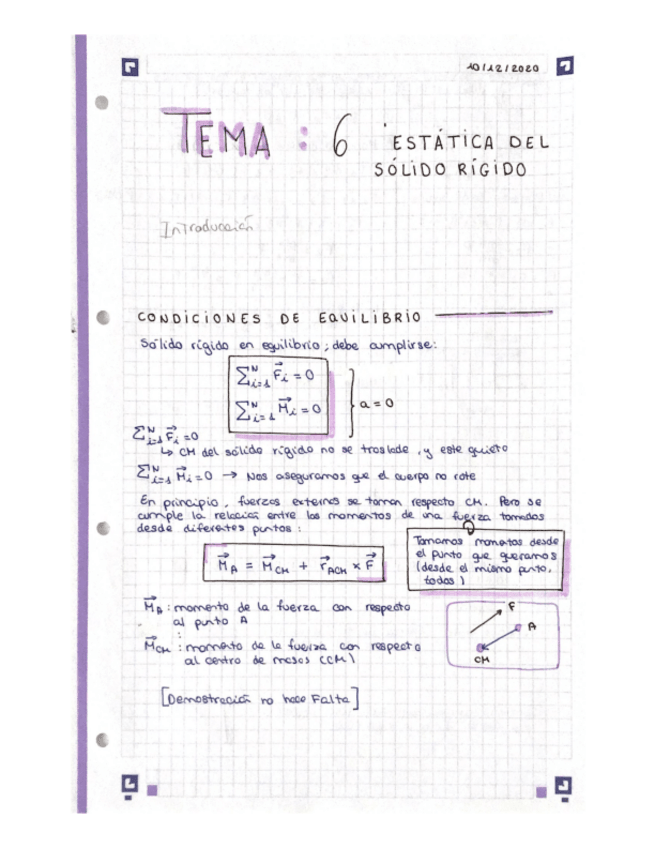 10/12/2020
TEMA : 6 ESTÁTICA DEL
SÓLIDO RÍGIDO
Introducción
CONDICIONES DE EQUILIBRIO
Sólido rígido en equilibrio, debe cumplirse:
∑ᴺᵢ₌₁ F⃗ᵢ = 0
∑ᴺᵢ₌₁ M⃗ᵢ = 0
a = 0
∑ᴺᵢ₌₁ F⃗ᵢ = 0
↳ CM del sólido rígido no se traslade, y este quieto
∑ᴺᵢ₌₁ M⃗ᵢ = 0 → Nos aseguramos que el cuerpo no rote
En principio, fuerzas externas se toman respecto CM. Pero se
cumple la relación entre los momentos de una fuerza tomados
desde diferentes puntos:
M⃗A = M⃗CM + r⃗ACM × F⃗
Tomamos momentos desde
el punto que queramos
(desde el mismo punto,
todos)
M⃗A : momento de la fuerza con respecto
al punto A
M⃗CM : momento de la fuerza con respecto
al centro de masas (CM)
F
A
CM
[Demostración no hace Falta]